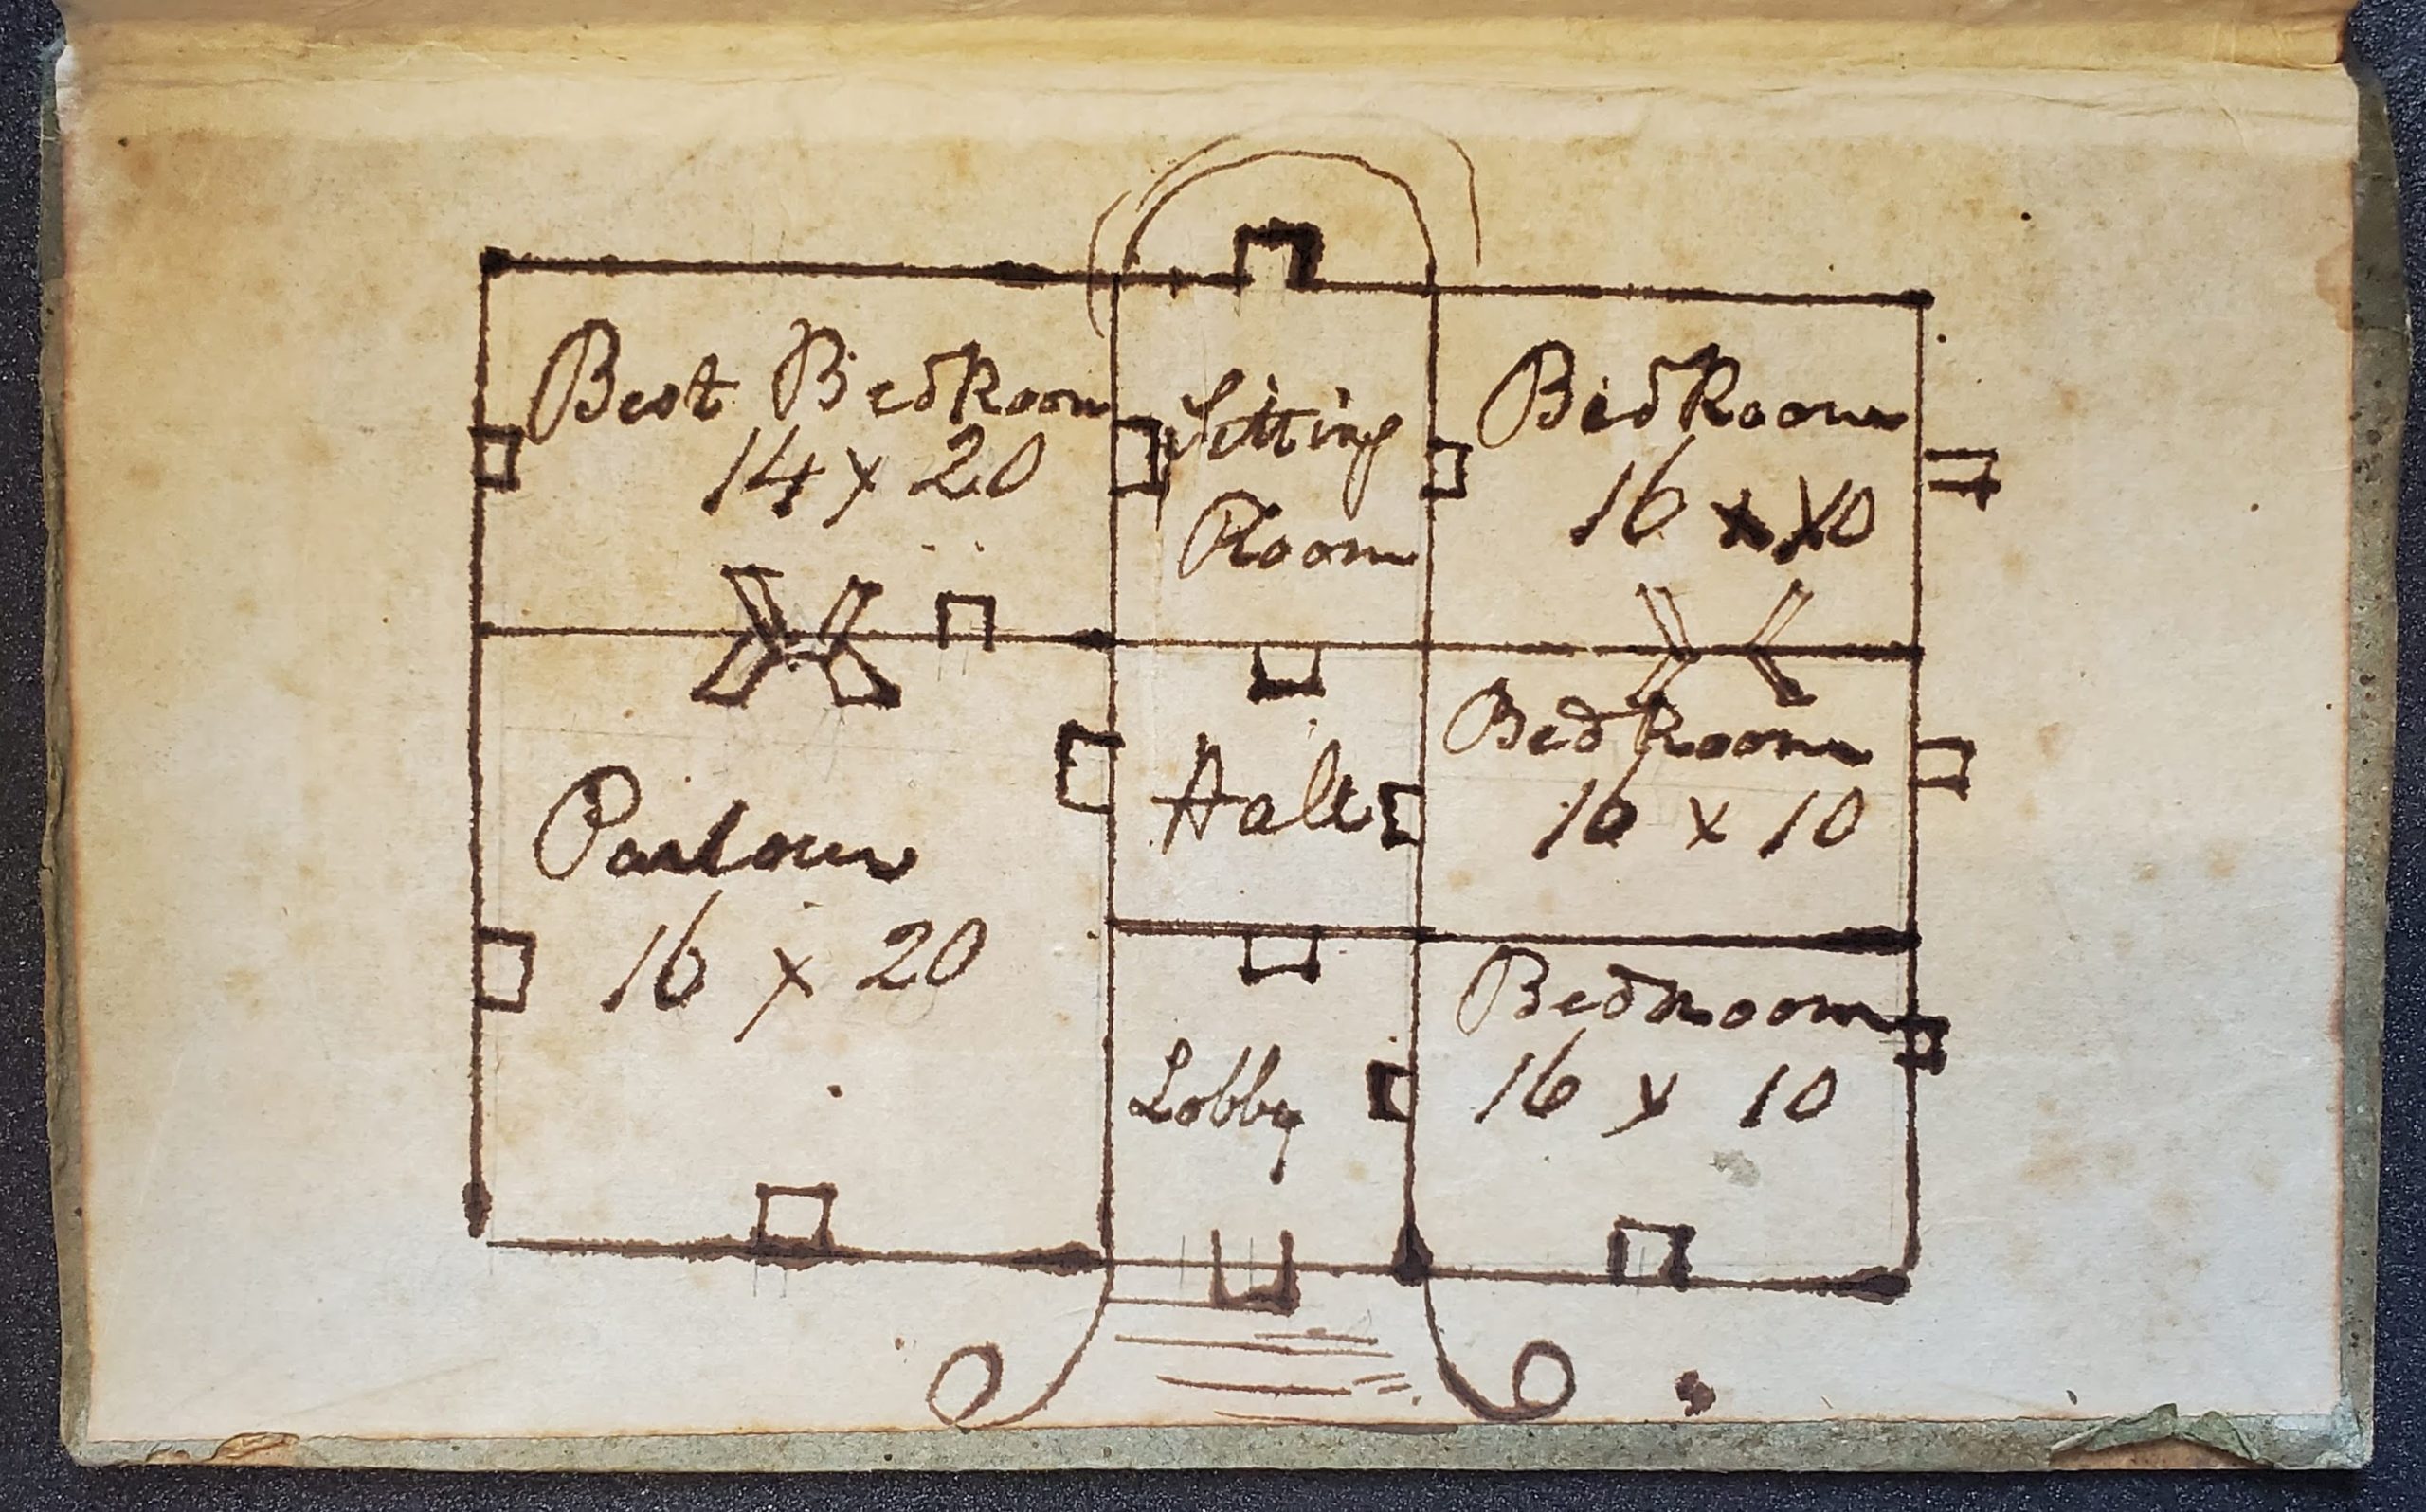 Best BedRoom
14 x 20
Sitting
Room
BedRoom
16 x 10
Parlour
16 x 20
Hall
BedRoom
16 x 10
Lobby
Bedroom
16 x 10